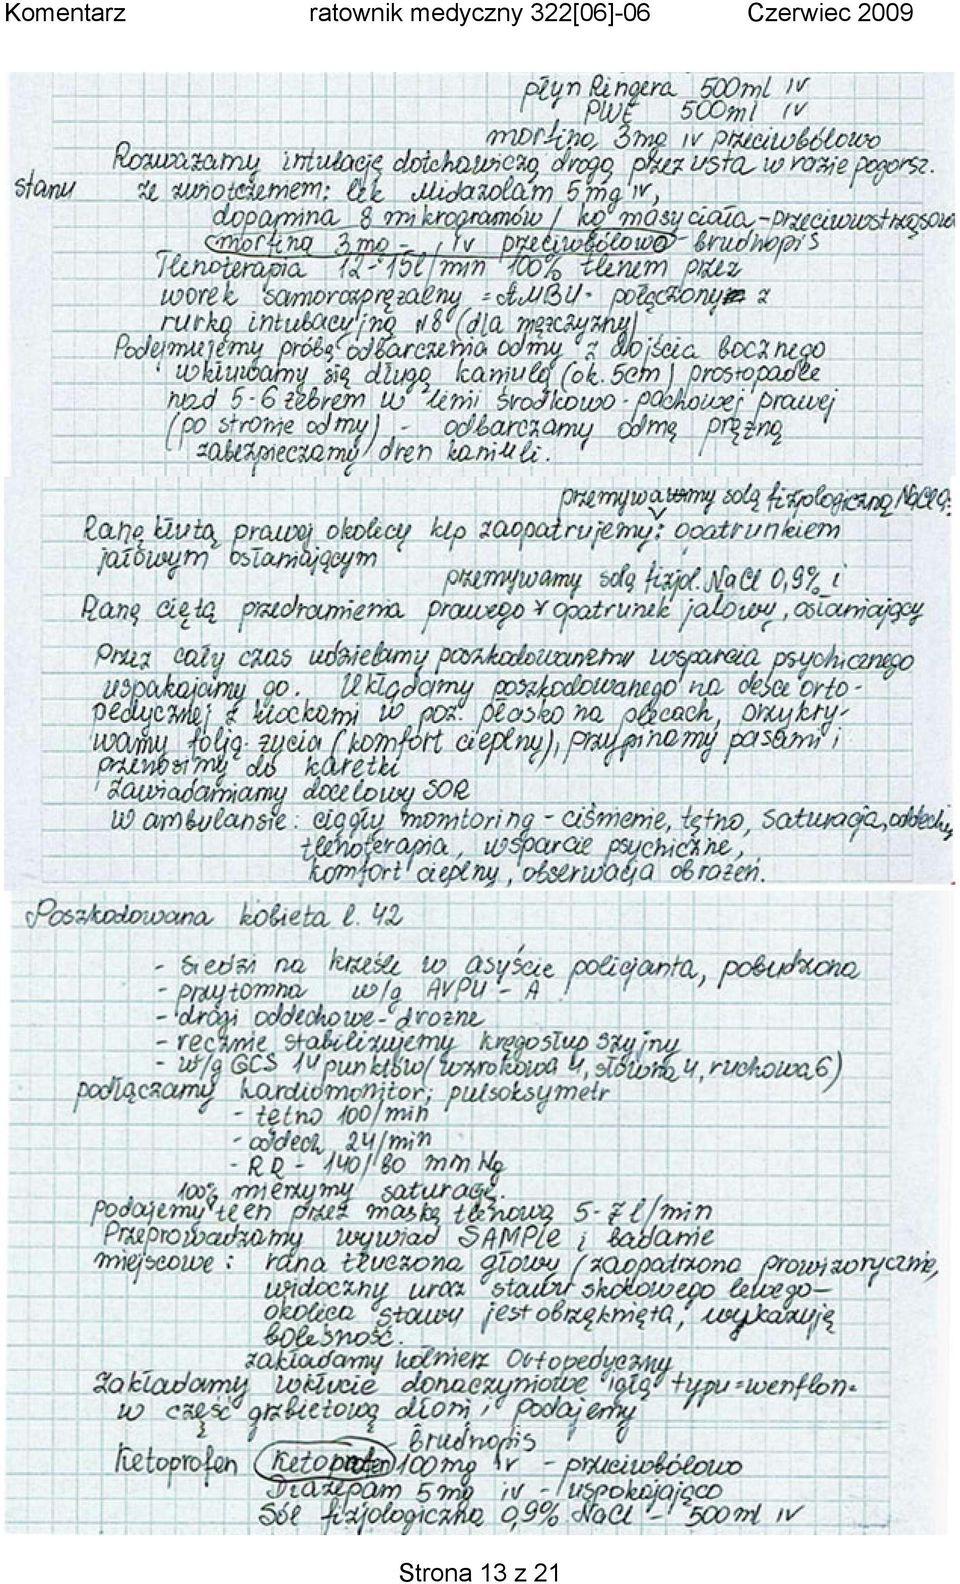 Komentarz ratownik medyczny 322[06]-06 Czerwiec 2009
płyn Ringera 500ml iv
PWE 500ml iv
morfina 3mg iv przeciwbólowo
Rozważamy intubację dotchawiczą drogą przez usta w razie pogorsz.
stanu ze zwiotczeniem: lek Midazolam 5mg iv,
dopamina 8 mikrogramów / kg masy ciała - przeciwwstrząsowo
(morfina 3mg - iv przeciwbólowo) - brudnopis
Tlenoterapia 12-15l/min 100% tlenem przez
worek samorozprężalny = AMBU - połączony z
rurką intubacyjną N8 (dla mężczyzny)
Podejmujemy próbę odbarczenia odmy z dojścia bocznego
wkłuwamy się długą kaniulą (ok. 5cm) prostopadle
nad 5-6 żebrem w lini środkowo-pachowej prawej
(po stronie odmy) - odbarczamy odmę prężną
zabezpieczamy dren kaniuli.
przemywamy solą fizjologiczną NaCl 0,
Ranę kłutą prawej okolicy klp zaopatrujemy: opatrunkiem
jałowym osłaniającym
przemywamy solą fizjol. NaCl 0,9% i
Ranę ciętą przedramienia prawego opatrunek jałowy, osłaniający
Przez cały czas udzielamy poszkodowanemu wsparcia psychicznego
uspakajamy go. Układamy poszkodowanego na desce orto-
pedycznej z klockami w poz. płasko na plecach, przykry-
wamy folią życia (komfort cieplny), przypinamy pasami i
przenosimy do karetki
zawiadamiamy docelowy SOR
w ambulansie: ciągły monitoring - ciśnienie, tętno, saturacja, oddechy
tlenoterapia, wsparcie psychiczne,
komfort cieplny, obserwacja obrażeń.
Poszkodowana kobieta l. 42
- siedzi na krześle w asyście policjanta, pobudzona
- przytomna w/g AVPU - A
- drogi oddechowe - drożne
- ręcznie stabilizujemy kręgosłup szyjny
- w/g GCS 14 punktów (wzrokowa 4, słowna 4, ruchowa 6)
podłączamy kardiomonitor; pulsoksymetr
- tętno 100/min
- oddech 24/min
- RR - 140/80 mm Hg
mierzymy saturację.
Podajemy 100% tlen przez maskę tlenową 5-7 l/min
Przeprowadzamy wywiad SAMPLE i badanie
miejscowe: rana tłuczona głowy (zaopatrzona prowizorycznie,
widoczny uraz stawu skokowego lewego-
okolica stawu jest obrzęknięta, wykazuje
bolesność.
zakładamy kołnierz ortopedyczny
Zakładamy wkłucie donaczyniowe igłą typu "wenflon"
w część grzbietową dłoni i podajemy
brudnopis
Ketoprofen (Ketoprofen) 100mg iv - przeciwbólowo
Diazepam 5mg iv - uspokajająco
Sól fizjologiczna 0,9% NaCl - 500ml iv
Strona 13 z 21